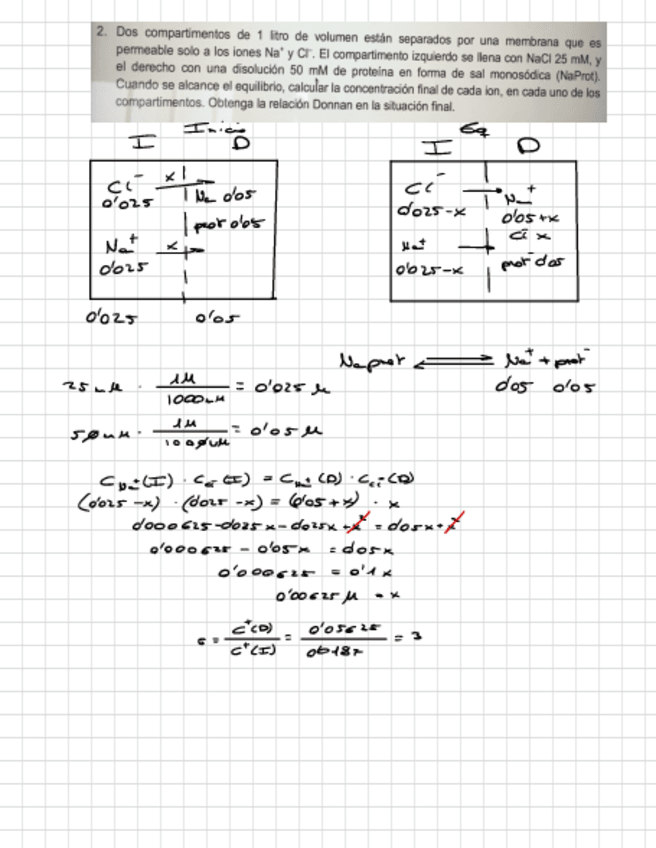 2. Dos compartimentos de 1 litro de volumen están separados por una membrana que es
permeable solo a los iones Na⁺ y Cl⁻. El compartimento izquierdo se llena con NaCl 25 mM, y
el derecho con una disolución 50 mM de proteína en forma de sal monosódica (NaProt).
Cuando se alcance el equilibrio, calcular la concentración final de cada ion, en cada uno de los
compartimentos. Obtenga la relación Donnan en la situación final.
Inicio
I D
Cl⁻ x
0'025
Na 0'05
prot 0'05
Na⁺ x
0'025
0'025 0'05
Eq
I D
Cl⁻
0'025-x
Na⁺
0'05+x
Cl⁻ x
Na⁺
0'025-x
prot⁻ 0'05
Naprot ⇌ Na⁺ + prot⁻
0'05 0'05
25 mM · 1M / 1000mM = 0'025 M
50 mM · 1M / 1000mM = 0'05 M
C Na⁺(I) · C Cl⁻(I) = C Na⁺(D) · C Cl⁻(D)
(0'025-x) · (0'025-x) = (0'05+x) · x
0'000625-0'025x-0'025x+x² = 0'05x+x²
0'000625 - 0'05x = 0'05x
0'000625 = 0'1x
0'00625 M = x
r = C⁺(D) / C⁺(I) = 0'05625 / 0'0187 = 3